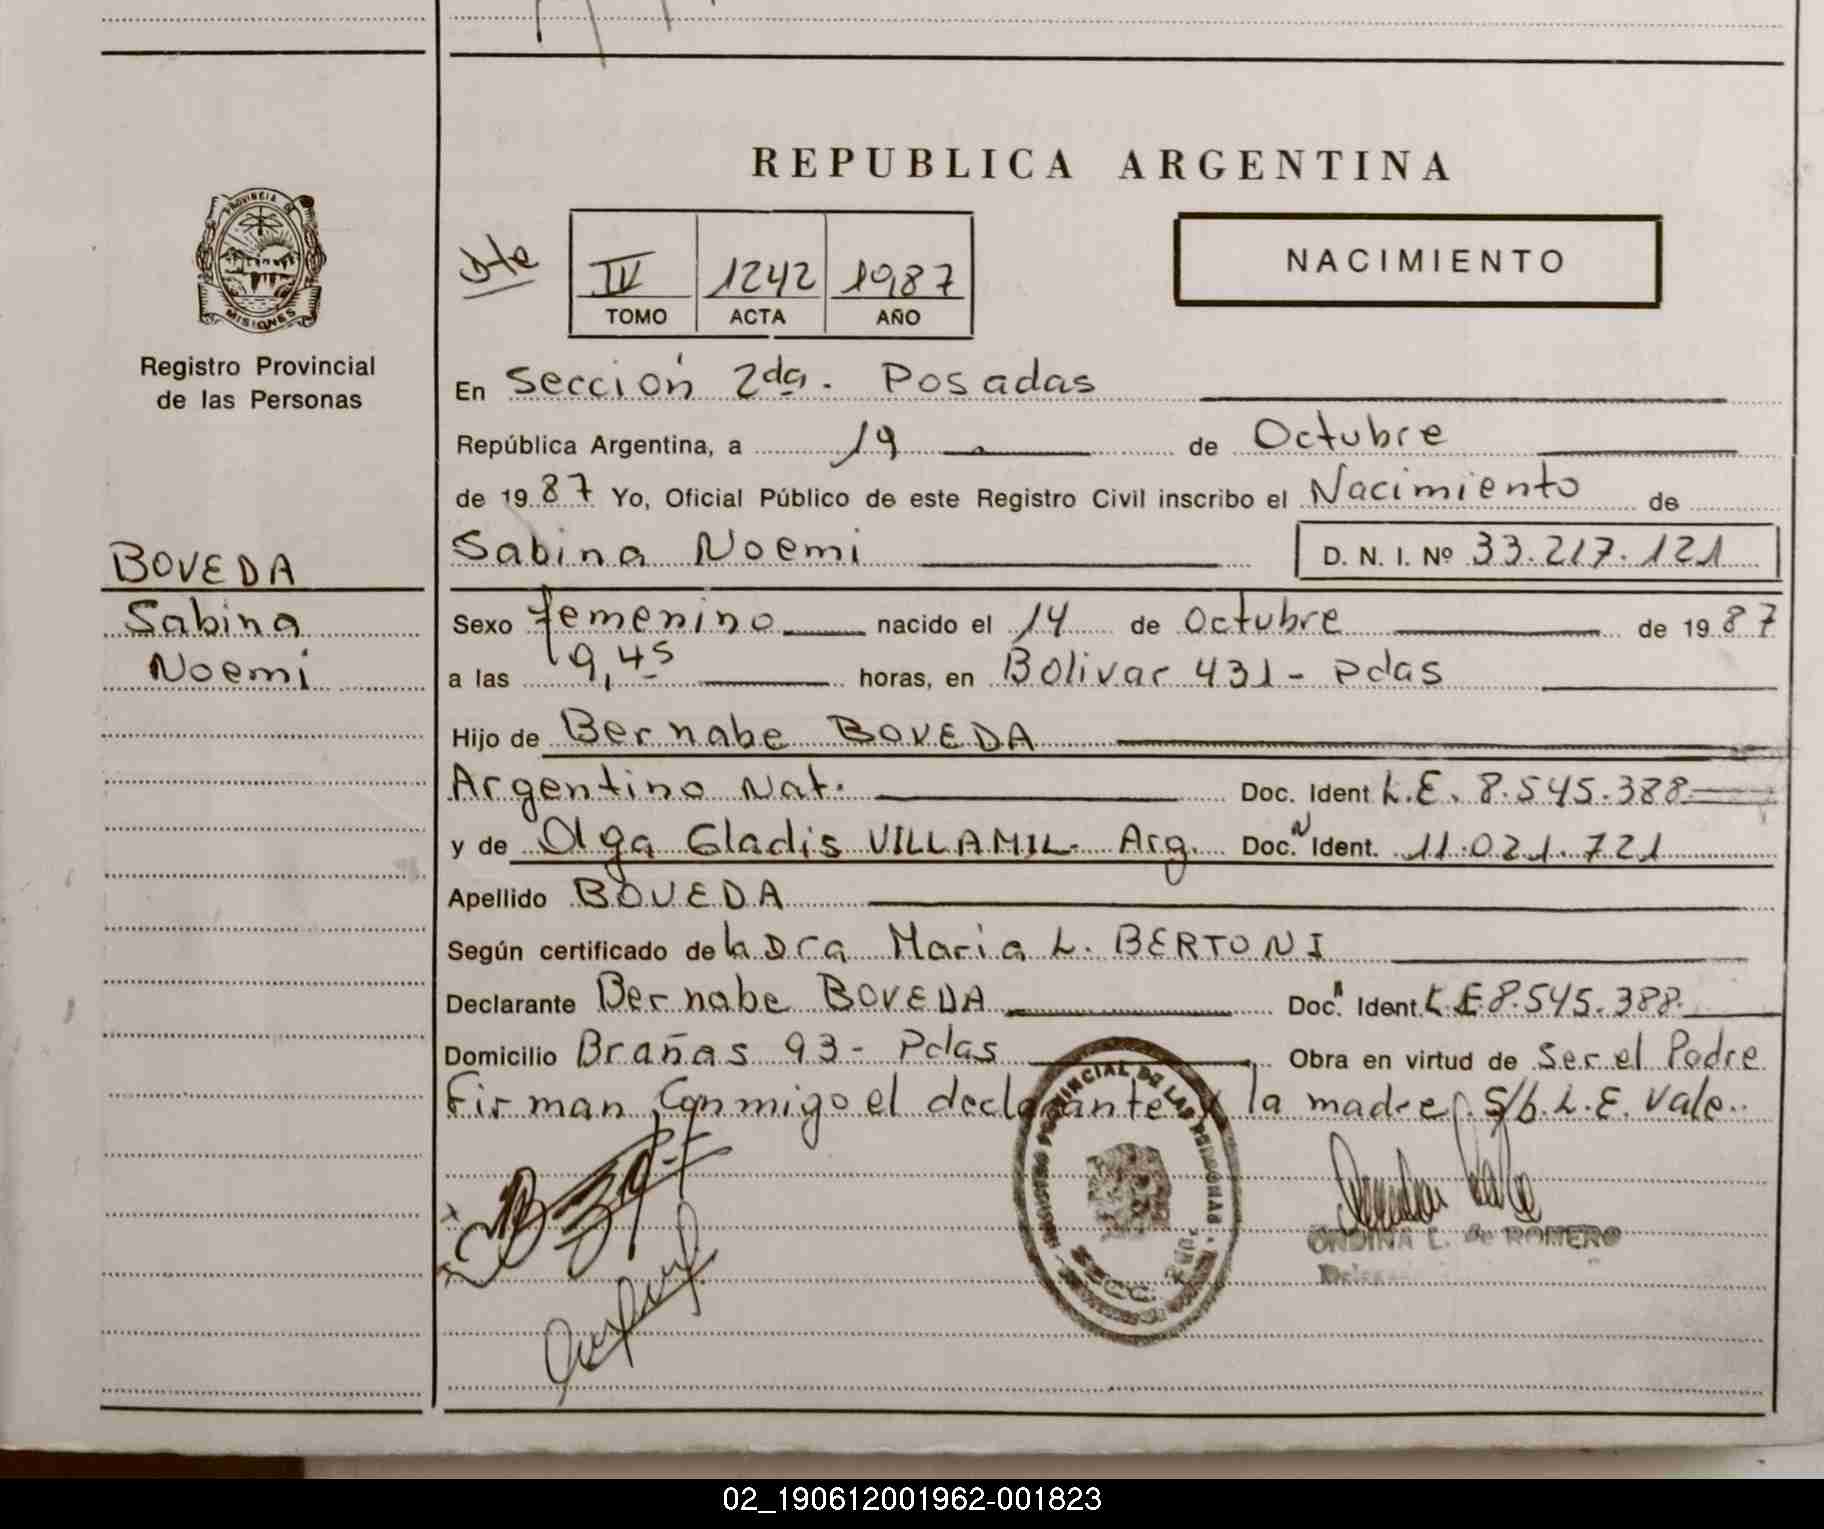 REPUBLICA ARGENTINA
PROVINCIA DE
MISIONES
Registro Provincial
de las Personas
Dte
IV 1242 1987
TOMO ACTA AÑO
NACIMIENTO
En Sección 2da. Posadas
República Argentina, a 19 de Octubre
de 1987 Yo, Oficial Público de este Registro Civil inscribo el Nacimiento de
Sabina Noemi D. N. I. Nº 33.217.121
BOVEDA
Sabina
Noemi
Sexo femenino nacido el 14 de Octubre de 1987
a las 9,45 horas, en Bolivar 431 - Pdas
Hijo de Bernabe BOVEDA
Argentino Nat. Doc. Ident L.E. 8.545.388
y de Olga Gladis VILLAMIL. Arg. Doc.N Ident. 11.021.721
Apellido BOVEDA
Según certificado de la Dra Maria L. BERTONI
Declarante Bernabe BOVEDA Doc. Ident. L E 8.545.388.
Domicilio Brañas 93 - Pdas Obra en virtud de Ser el Padre
Firman Conmigo el declarante y la madre. S/b. L.E. Vale.
REGISTRO PROVINCIAL DE LAS PERSONAS
SECC.
ONDINA L. de ROMERO
02_190612001962-001823